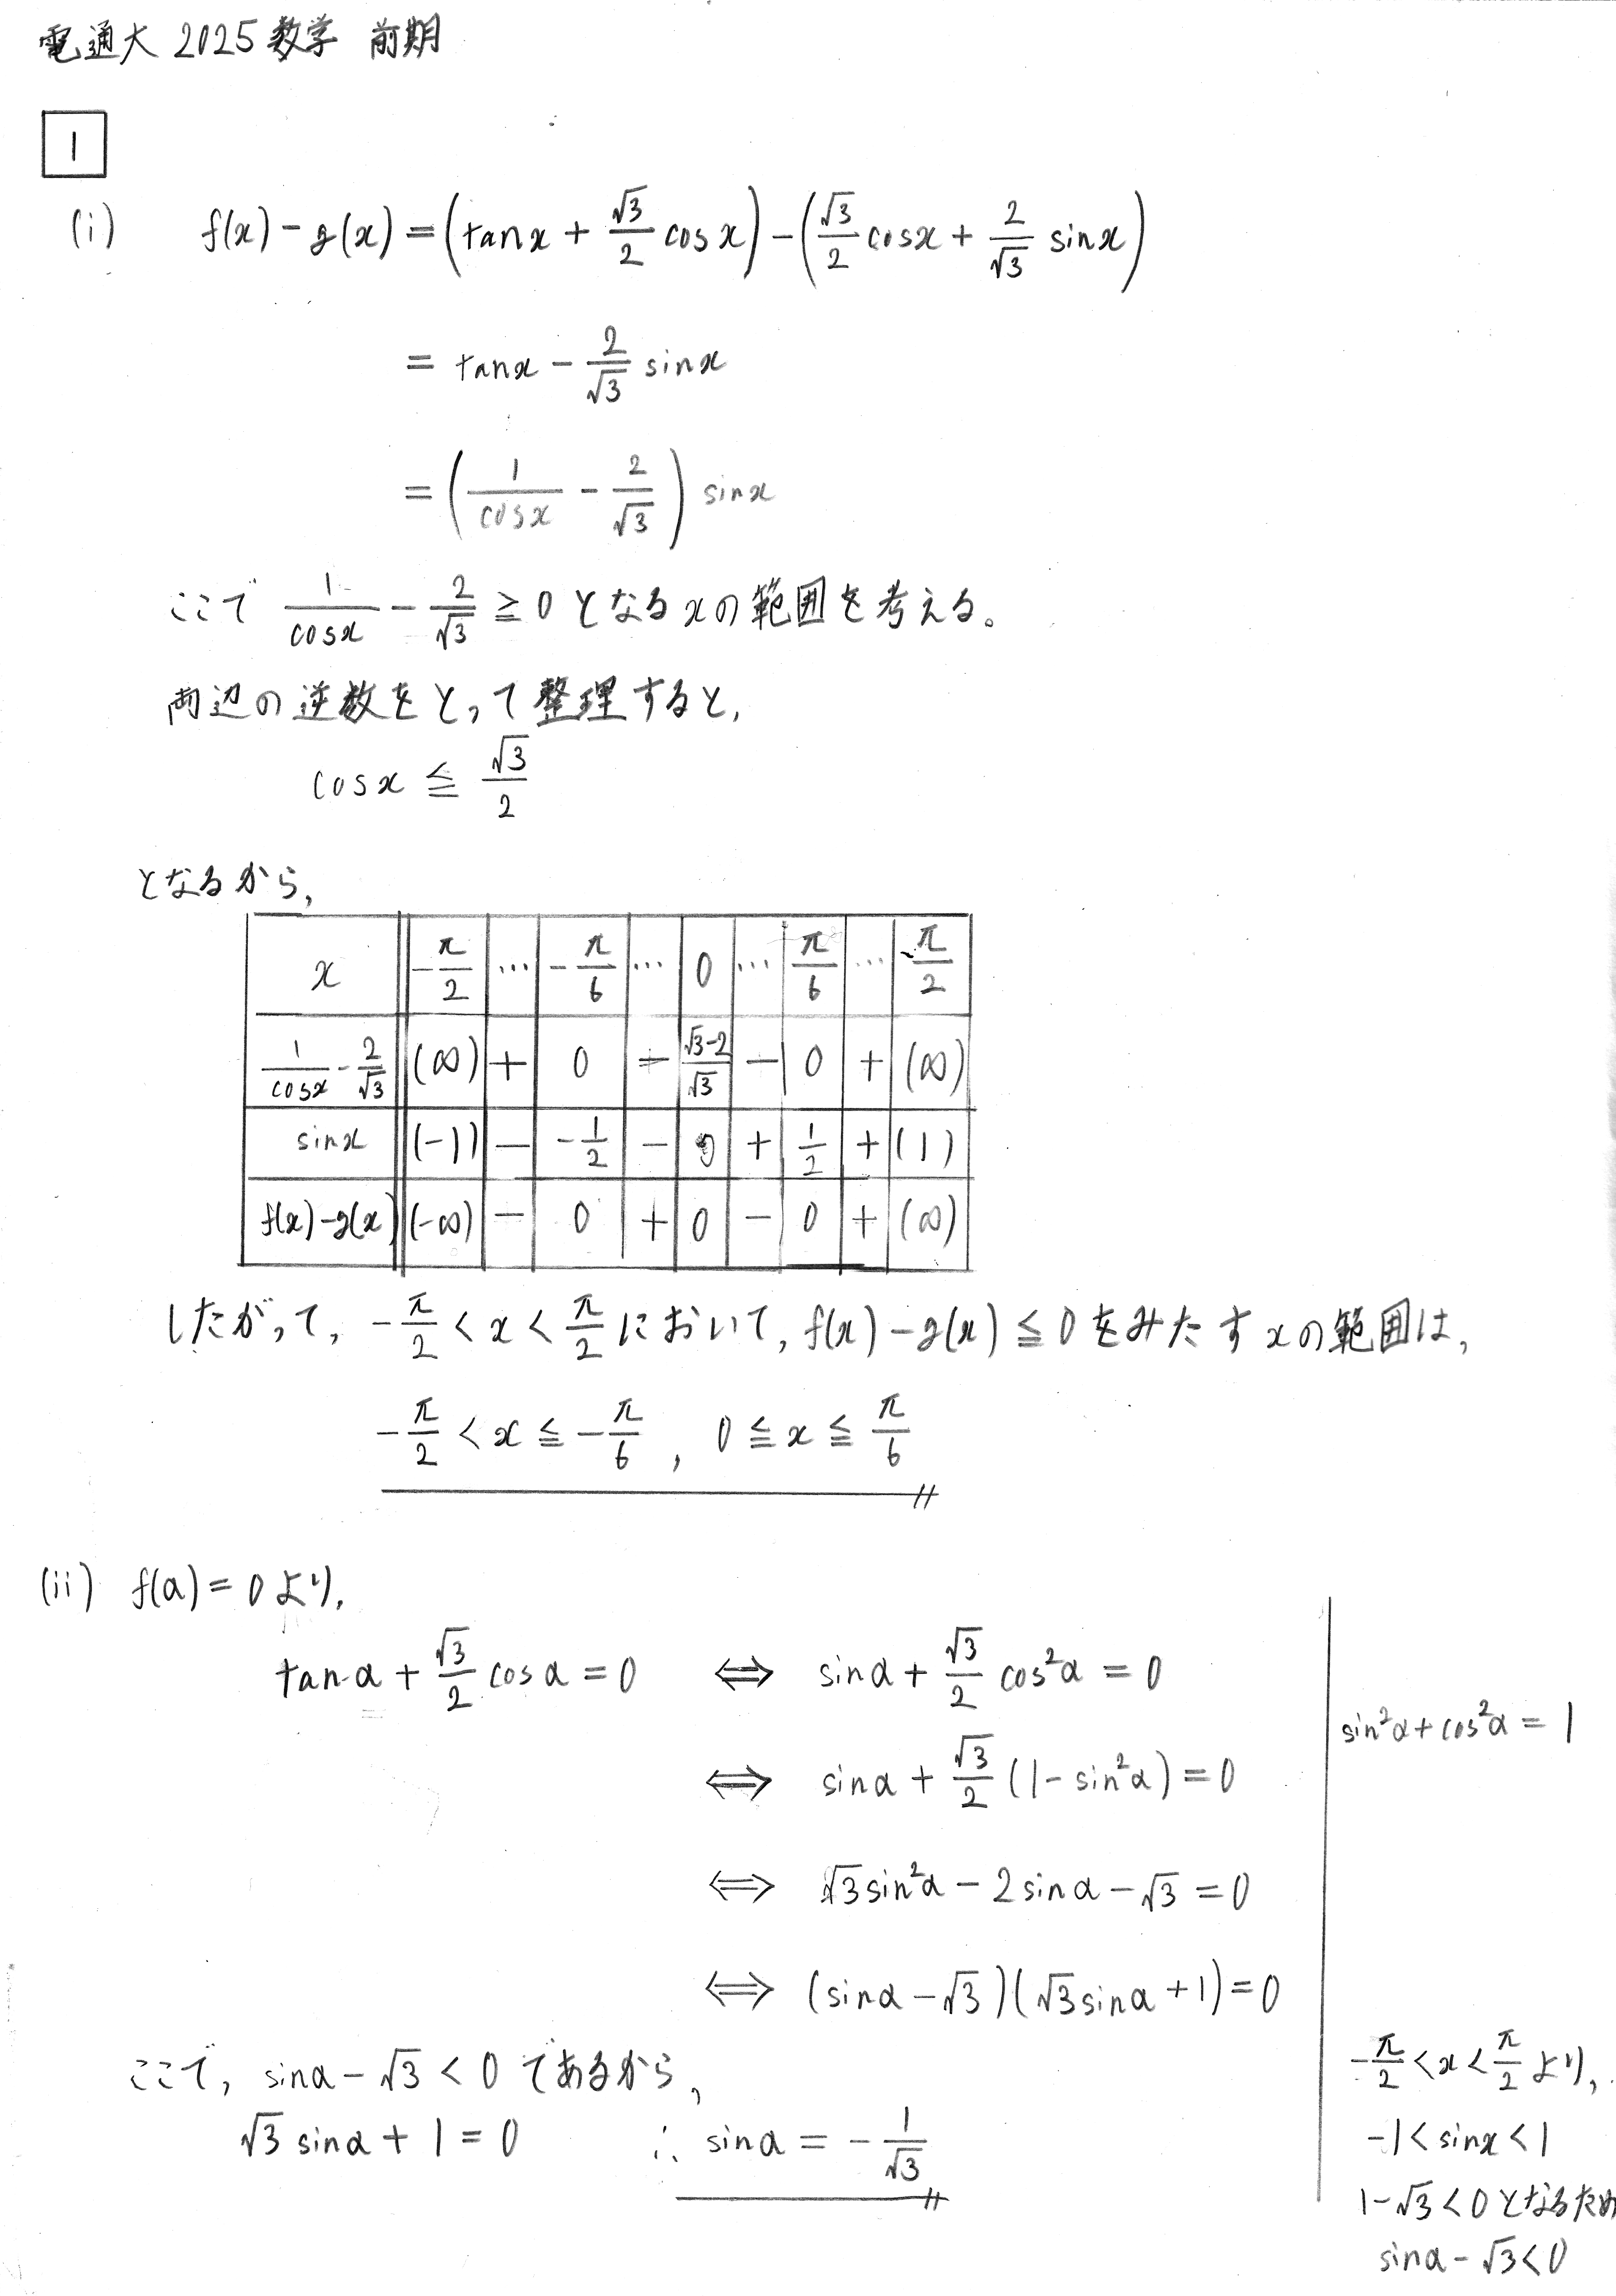 電通大 2025 数学 前期
1
(i) f(x) - g(x) = (tanx + √3/2 cosx) - (√3/2 cosx + 2/√3 sinx)
= tanx - 2/√3 sinx
= (1/cosx - 2/√3) sinx
ここで 1/cosx - 2/√3 ≧ 0 となる x の範囲を考える。
両辺の逆数をとって整理すると,
cosx ≦ √3/2
となるから,
x -π/2 … -π/6 … 0 … π/6 … π/2
1/cosx - 2/√3 (∞) + 0 - (√3-2)/√3 - 0 + (∞)
sinx (-1) - -1/2 - 0 + 1/2 + (1)
f(x)-g(x) (-∞) - 0 + 0 - 0 + (∞)
したがって, -π/2 < x < π/2 において, f(x) - g(x) ≦ 0 をみたす x の範囲は,
-π/2 < x ≦ -π/6 , 0 ≦ x ≦ π/6
(ii) f(α) = 0 より,
tanα + √3/2 cosα = 0 ⇔ sinα + √3/2 cos²α = 0
sin²α + cos²α = 1
⇔ sinα + √3/2 (1 - sin²α) = 0
⇔ √3sin²α - 2sinα - √3 = 0
⇔ (sinα - √3)(√3sinα + 1) = 0
ここで, sinα - √3 < 0 であるから,
√3 sinα + 1 = 0 ∴ sinα = - 1/√3
-π/2 < x < π/2 より,
-1 < sinx < 1
1 - √3 < 0 となるため
sinα - √3 < 0